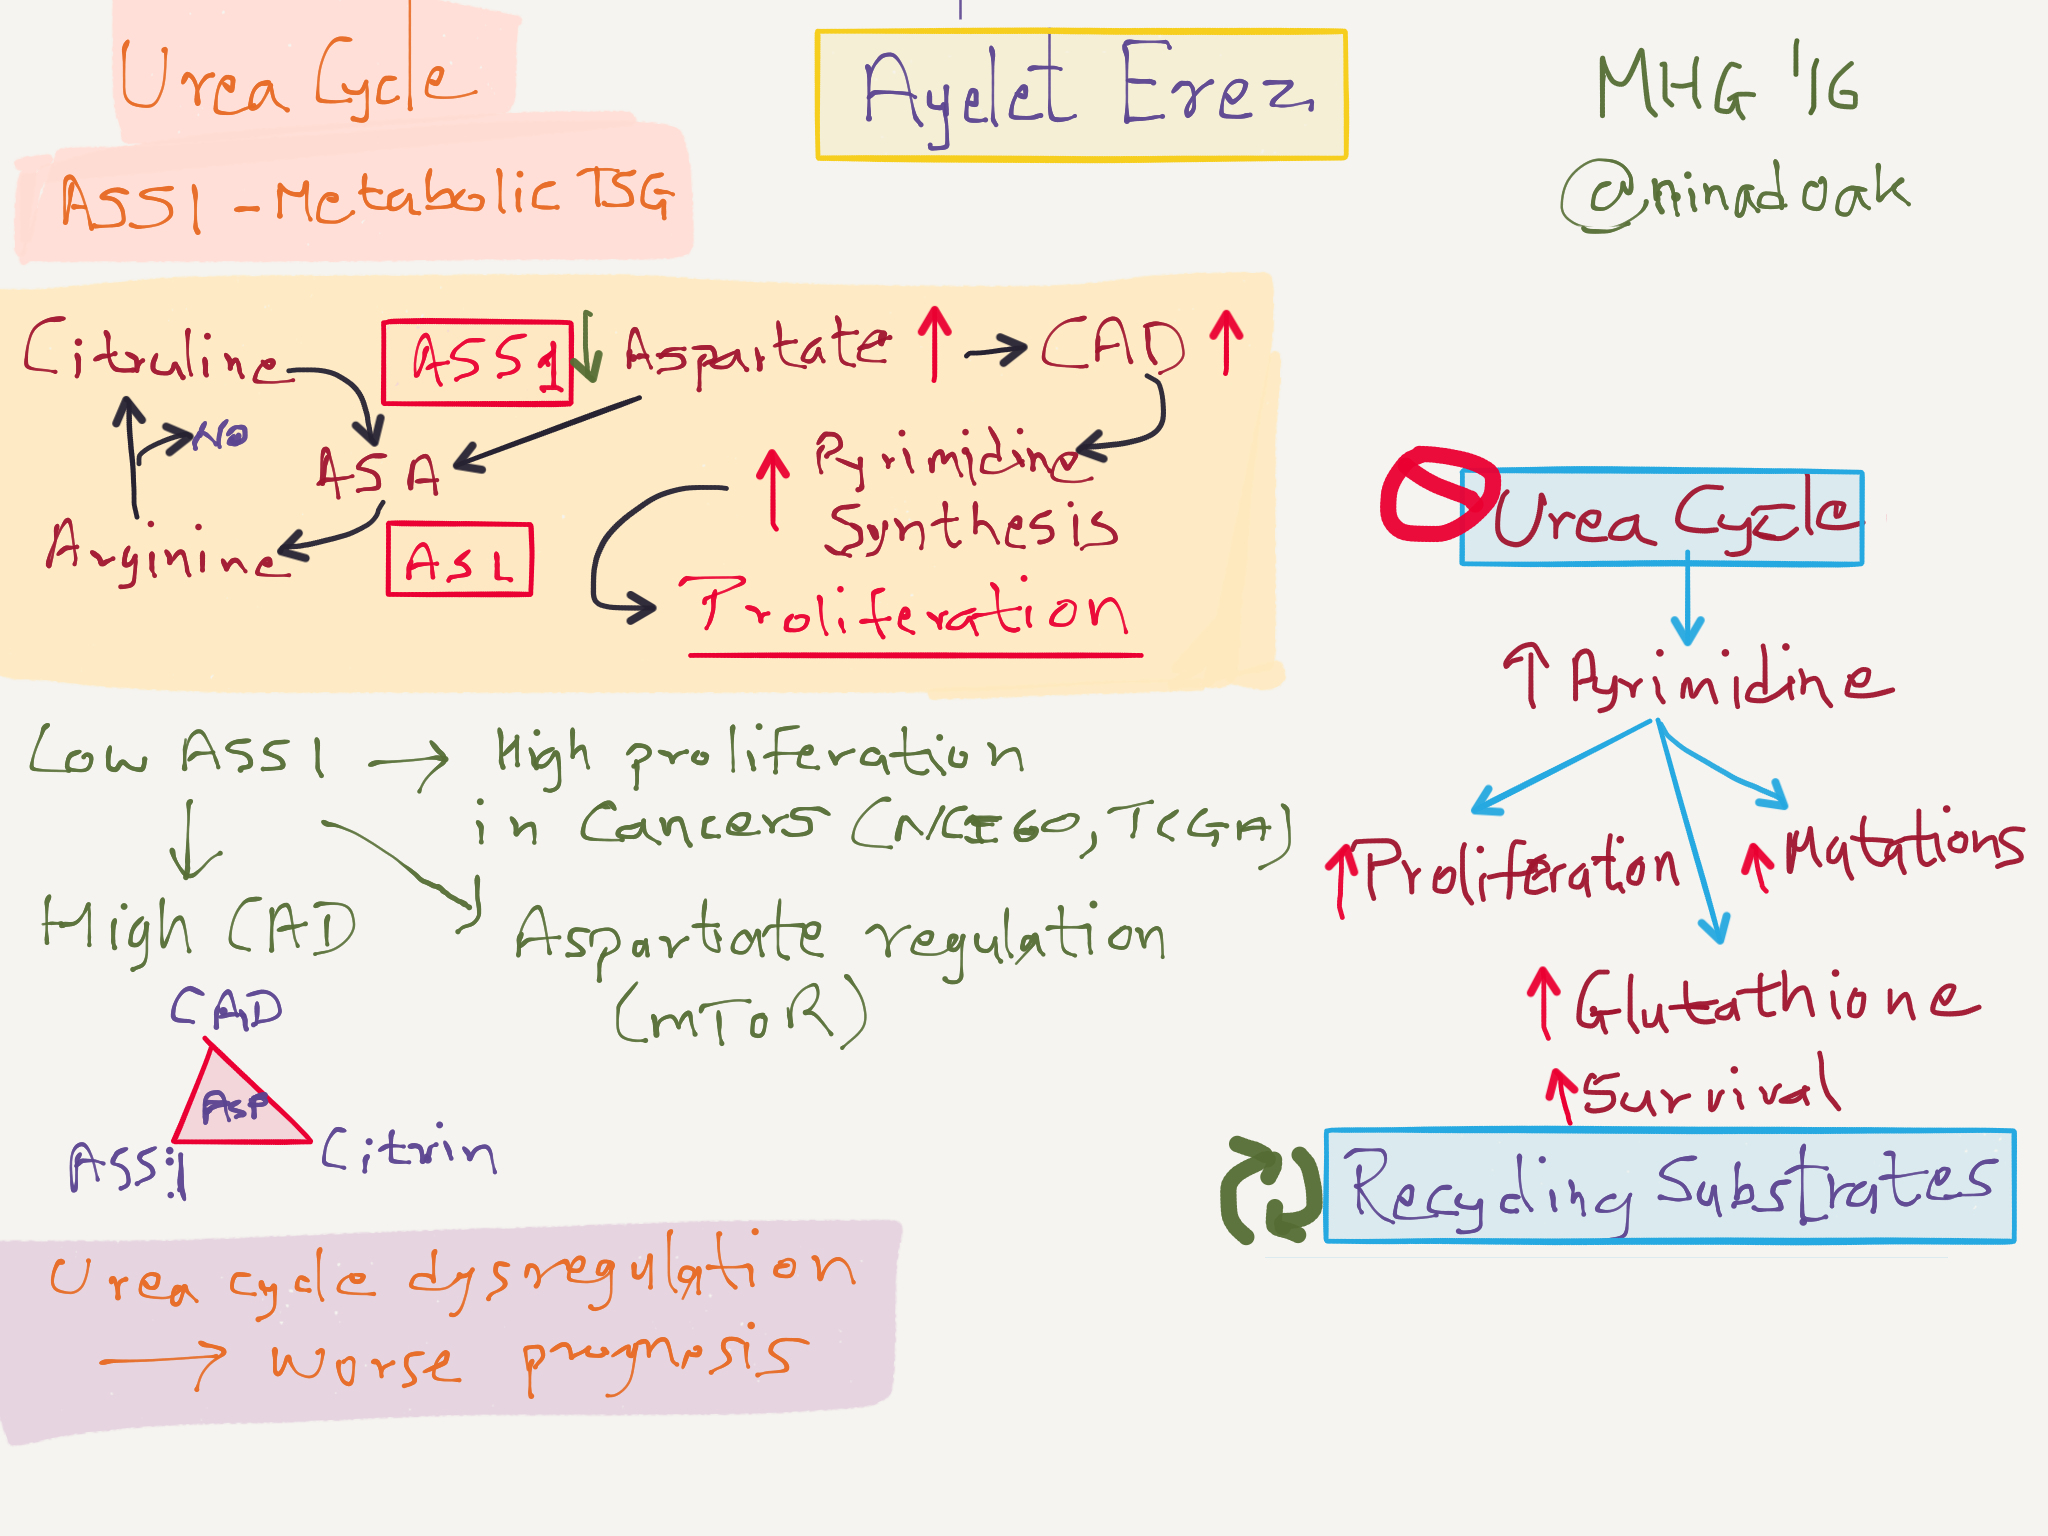 Urea Cycle
ASS1 - Metabolic TSG
Ayelet Erez
MHG '16
@ninadoak
Citruline
ASS1
↓ Aspartate ↑ → CAD ↑
NO
ASA
Arginine
ASL
↑ Pyrimidine
Synthesis
Proliferation
Low ASS1 → High proliferation
in Cancers (NCI60, TCGA)
High CAD
Aspartate regulation
(mTOR)
CAD
Asp
ASS1
Citrin
Urea cycle dysregulation
→ worse prognosis
Urea Cycle
↑ Pyrimidine
↑ Proliferaton
↑ Mutations
↑ Glutathione
↑ Survival
Recycling Substrates